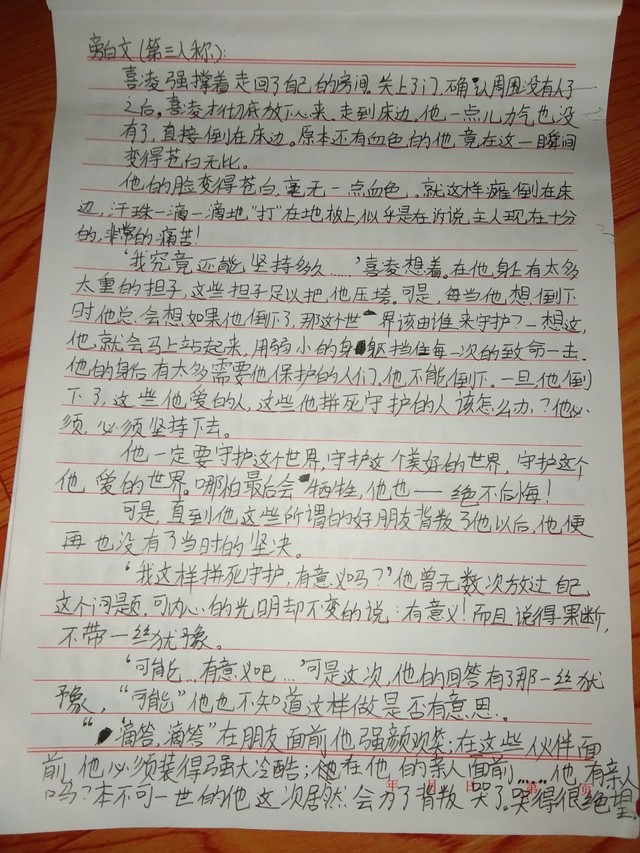 旁白文(第三人称):
喜凌强撑着走回了自己的房间。关上了门,确认周围没有人了
之后,喜凌才彻底放下心来。走到床边。他一点儿力气也没
有了,直接倒在床边。原本还有血色的他,竟在这一瞬间
变得苍白无比。
他的脸变得苍白,毫无一点血色,就这样瘫倒在床
边,汗珠一滴一滴地“打”在地板上,似乎是在诉说主人现在十分
的,非常的痛苦!
‘我究竟还能坚持多久……’喜凌想着。在他身上有太多
太重的担子,这些担子足以把他压垮。可是,每当他想倒下
时他总会想如果他倒下了,那这个世界该由谁来守护?一想这,
他就会马上站起来,用弱小的身躯挡住每一次的致命一击。
他的身后有太多需要他保护的人们,他不能倒下。一旦他倒
下了,这些他爱的人,这些他拼死守护的人该怎么办?他必
须,必须坚持下去。
他一定要守护这个世界,守护这个美好的世界,守护这个
他爱的世界。哪怕最后会牺牲,他也——绝不后悔!
可是,直到他这些所谓的好朋友背叛了他以后,他便
再也没有了当时的坚决。
‘我这样拼死守护,有意义吗?’他曾无数次放过自己
这个问题,可内心的光明却不变的说:有意义!而且说得果断,
不带一丝犹豫。
‘可能…有意义吧…’可是这次,他的回答有了那一丝犹
豫,“可能”他也不知道这样做是否有意思。
“滴答,滴答”在朋友面前他强颜欢笑;在这些伙伴面
前,他必须装得强大冷酷;在他的亲人面前……他,有亲人
吗?本不可一世的他这次居然会为了背叛哭了。哭得很绝望。
年 月 日 第 页